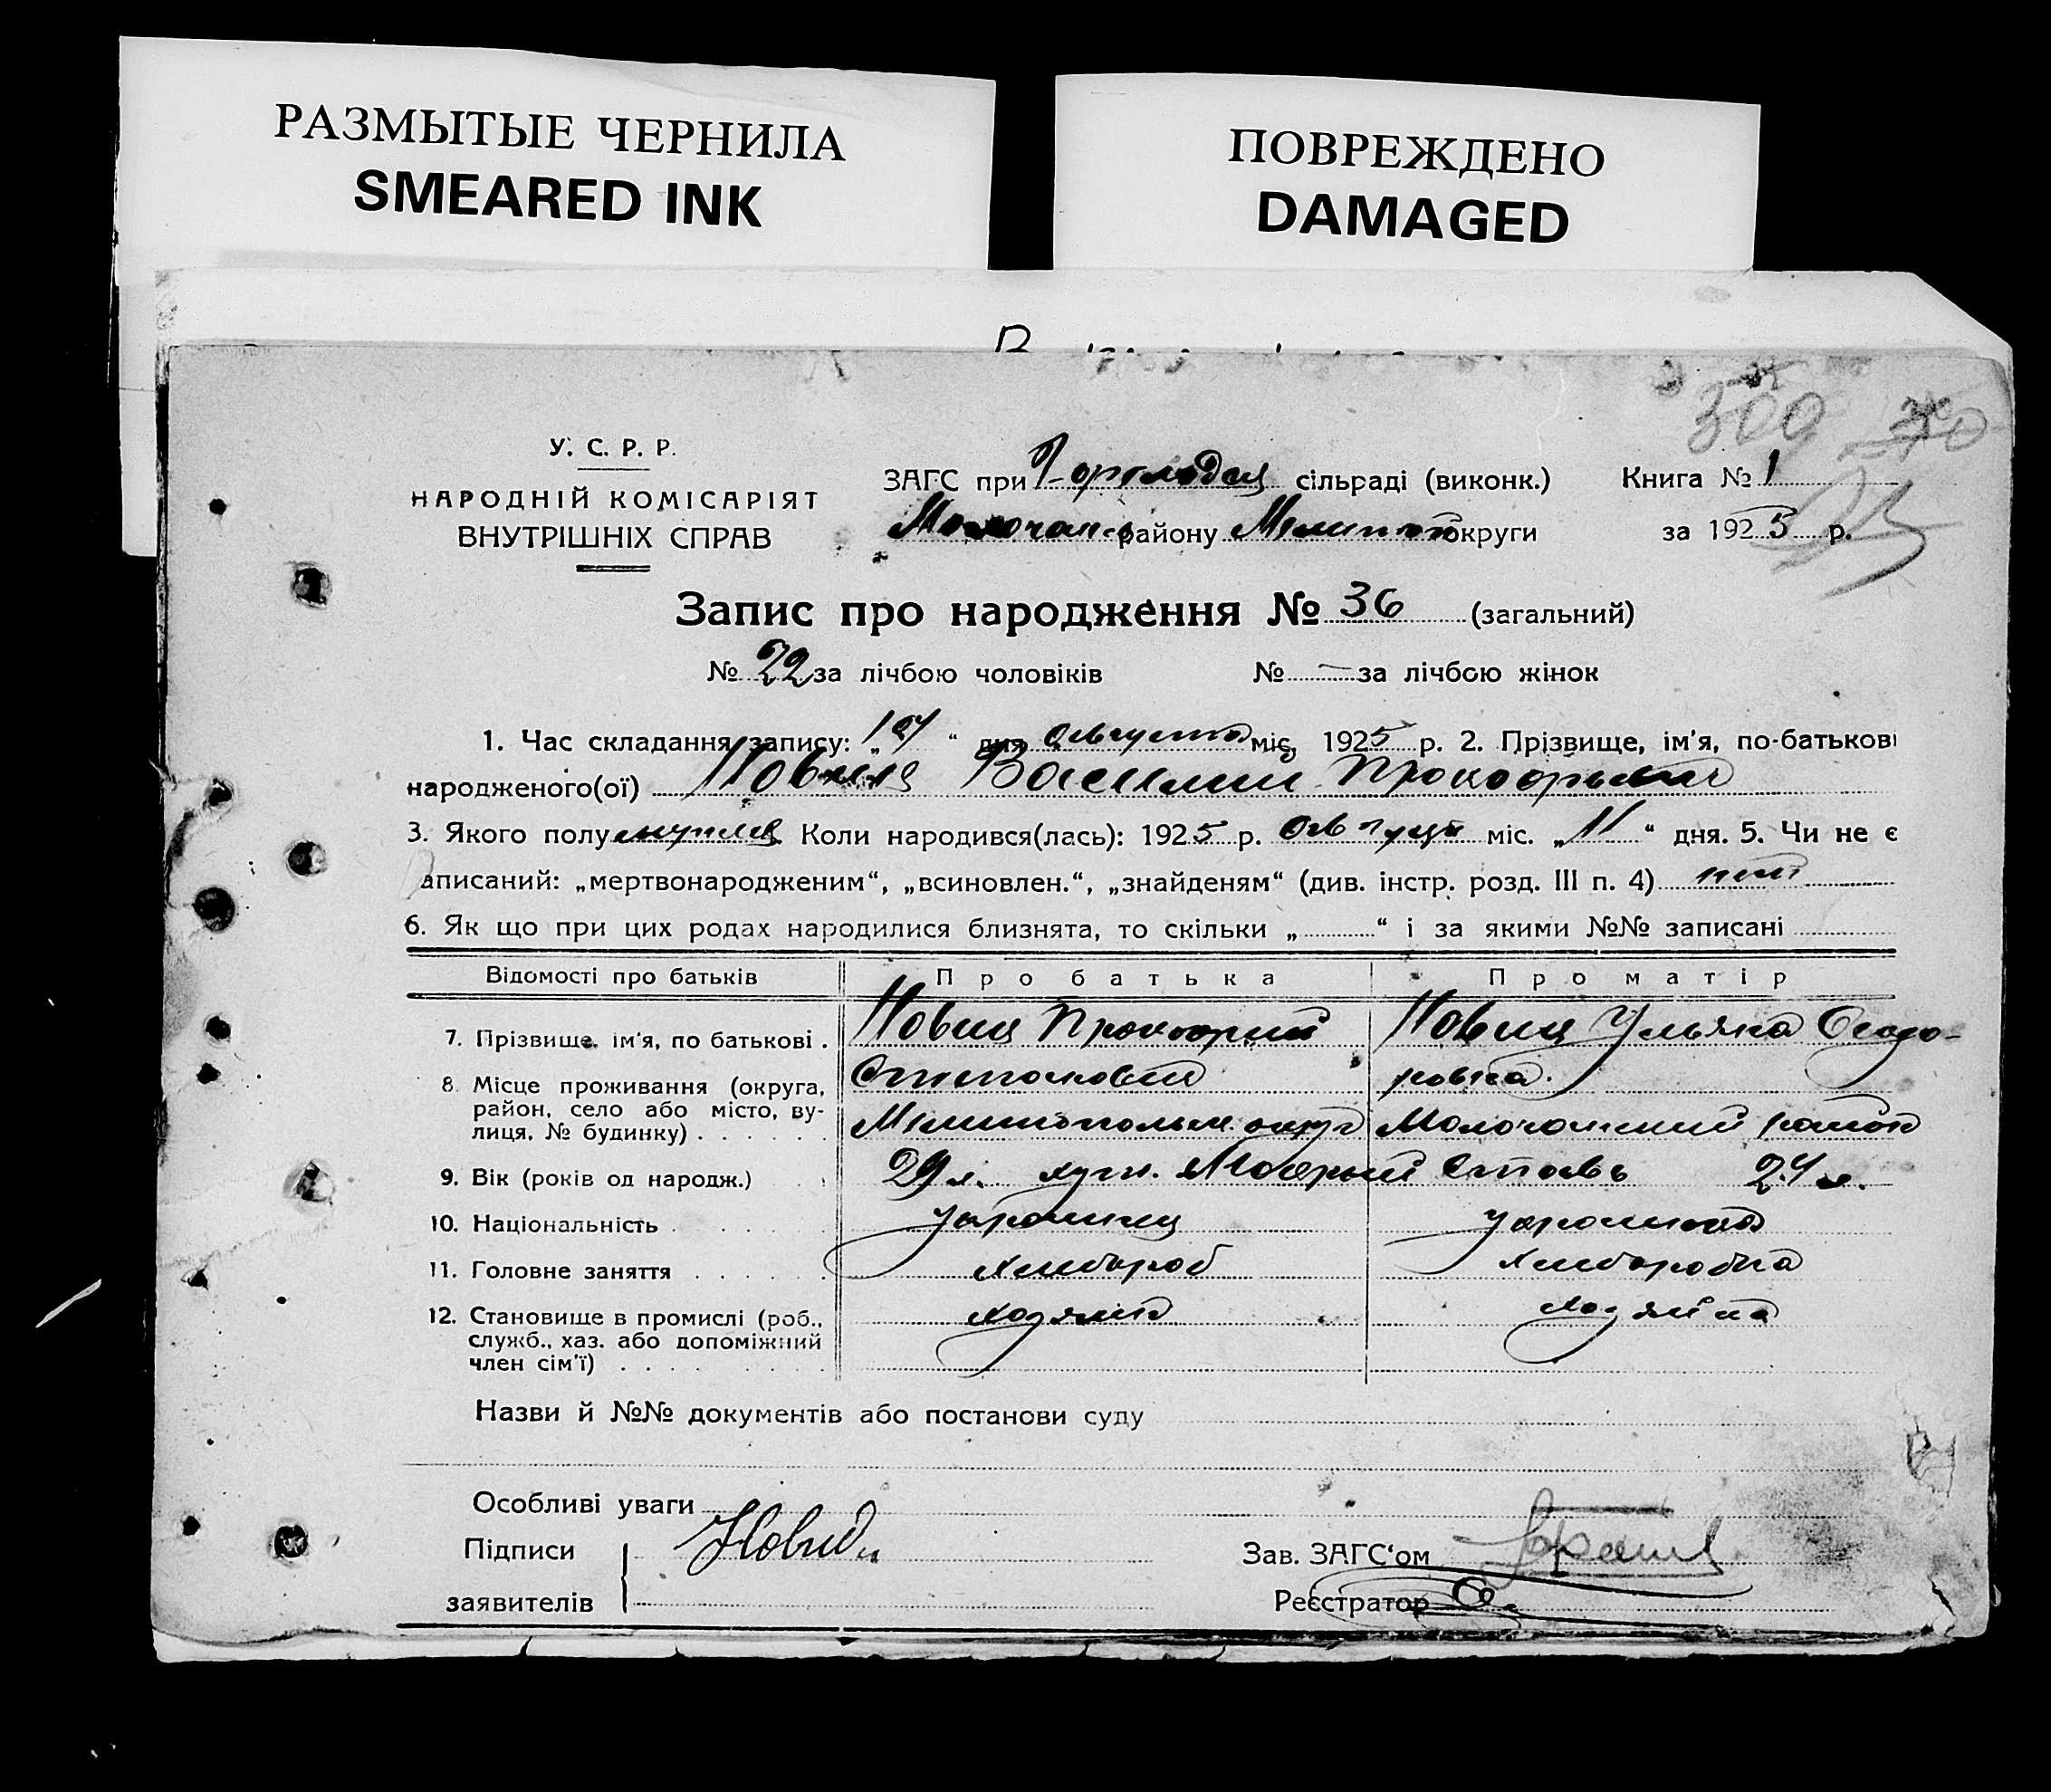 РАЗМЫТЫЕ ЧЕРНИЛА
SMEARED INK
ПОВРЕЖДЕНО
DAMAGED
300
У. С. Р. Р.
НАРОДНІЙ КОМІСАРІЯТ
ВНУТРІШНІХ СПРАВ
ЗАГС при сільраді (виконк.) Книга № 1
Молочан району Мелитоп округи за 1925 р.
Запис про народження № 36 (загальний)
№ 22 за лічбою чоловіків № — за лічбою жінок
1. Час складання запису: „ “ дня августа міс. 1925 р. 2. Прізвище, ім'я, по-батькові
народженого(ої) Новиц Василий Прокофьевич
3. Якого полу Коли народився(лась): 1925 р. август міс. „11“ дня. 5. Чи не є
аписаний: „мертвонародженим“, „всиновлен.“, „знайденям“ (див. інстр. розд. III п. 4) нет
6. Як що при цих родах народилися близнята, то скільки „ “ і за якими №№ записані
Відомості про батьків Про батька Про матір
7. Прізвище, ім'я, по батькові . Новиц Прокофий Новиц Ульяна Феодо-
8. Місце проживання (округа, ровна.
район, село або місто, ву-
лиця, № будинку) . . . . . . Мелитопольск. округ Молочанский район
9. Вік (років од народж.) 29 л. хут. Мокрый Ставъ 24 л.
10. Національність украинец украинка
11. Головне заняття . . . . . хлибороб хлиборобка
12. Становище в промислі (роб., хозяин хозяйка
служб., хаз. або допоміжний
член сім'ї) . . . . . . . .
Назви й №№ документів або постанови суду
Особливі уваги
Підписи Зав. ЗАГС‘ом
заявителів Реєстратор